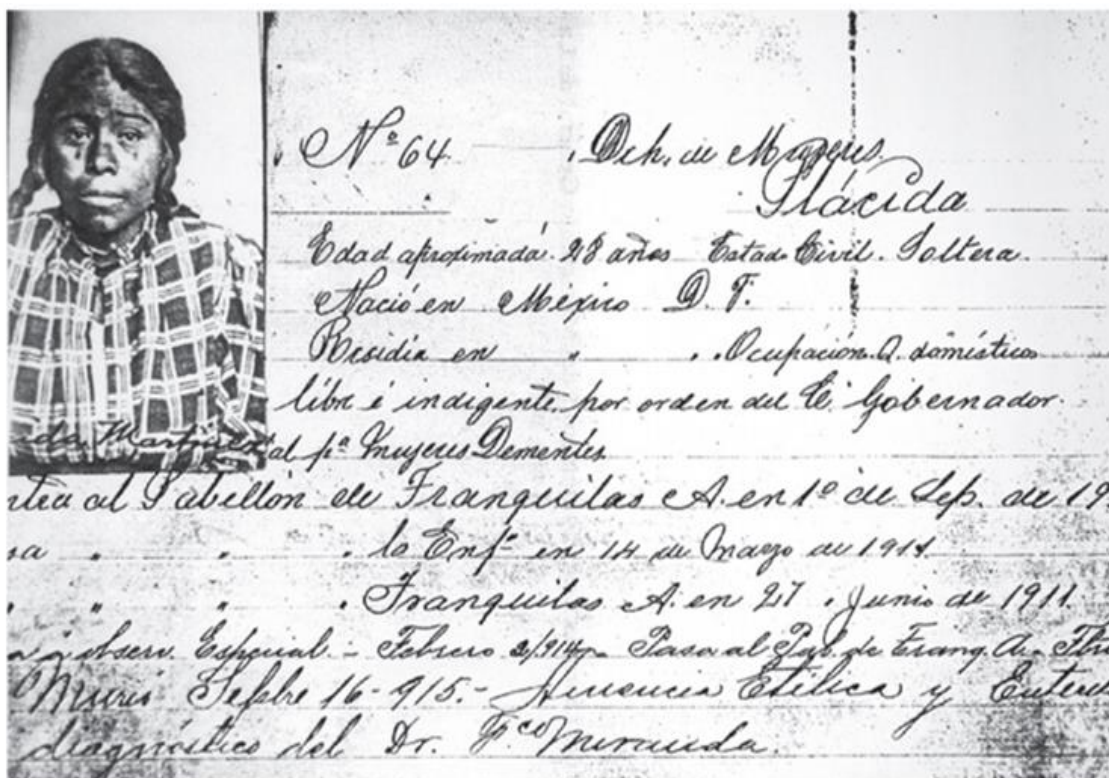 Nº 64. Dep. de Mujeres.
Plácida
Edad aproximada. 28 años Estado Civil. Soltera.
Nació en México D. F.
Residía en " " . Ocupación. Q. domésticos
libre é indigente, por orden del C. Gobernador.
al pª Mujeres Dementes
al Pabellón de Tranquilas A. en 1º de Sep. de 19
" " " la Enfª en 14 de Marzo de 1911.
" " " " Tranquilas A. en 27 " Junio de 1911.
observ. Especial - Febrero 2/914 - Pasa al Pab. de Tranq. A.
Murió Sepbre 16-915.- Demencia Etílica y
diagnóstico del Dr. Fco Miranda.